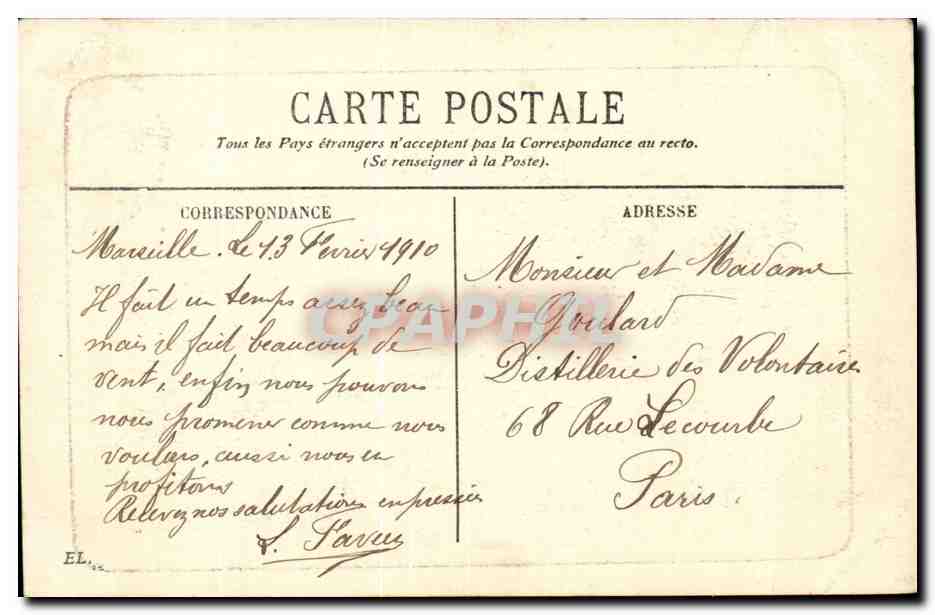 CARTE POSTALE
Tous les Pays étrangers n'acceptent pas la Correspondance au recto.
(Se renseigner à la Poste).
CORRESPONDANCE
Marseille. Le 13 Fevrier 1910
Il fait un temps assez beau
mais il fait beaucoup de
vent, enfin nous pouvons
nous promener comme nous
voulons, aussi nous en
profitons
Recevez nos salutations empressées
ADRESSE
Monsieur et Madame
Goulard
Distillerie des Volontaires
68 Rue Lecourbe
Paris.
EL.
CPAPHIL